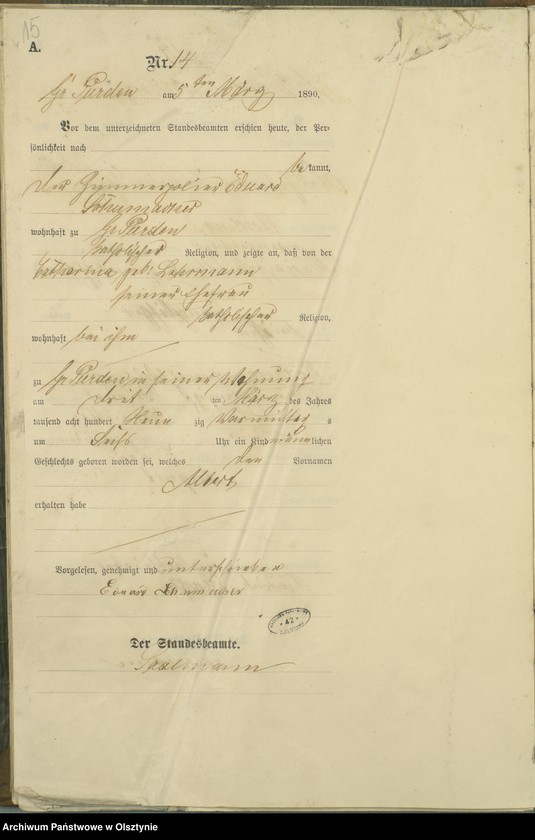 15
A.
Nr. 14
Gr Purden am 5ten März 1890.
Vor dem unterzeichneten Standesbeamten erschien heute, der Per-
sönlichkeit nach
bekannt,
der Zimmerpolier Eduard
Schumacher
wohnhaft zu Gr Purden
katholischer Religion, und zeigte an, daß von der
Catharina geb: Lehrmann
seiner Ehefrau
katholischer Religion,
wohnhaft bei ihm
zu Gr Purden in seiner Wohnung
am drit ten März des Jahres
tausend acht hundert Neun zig Vormittag s
um Sechs Uhr ein Kind männlichen
Geschlechts geboren worden sei, welches den Vornamen
Albert
erhalten habe
Vorgelesen, genehmigt und unterschrieben
Eduard Schumacher
42
Der Standesbeamte.
Archiwum Państwowe w Olsztynie